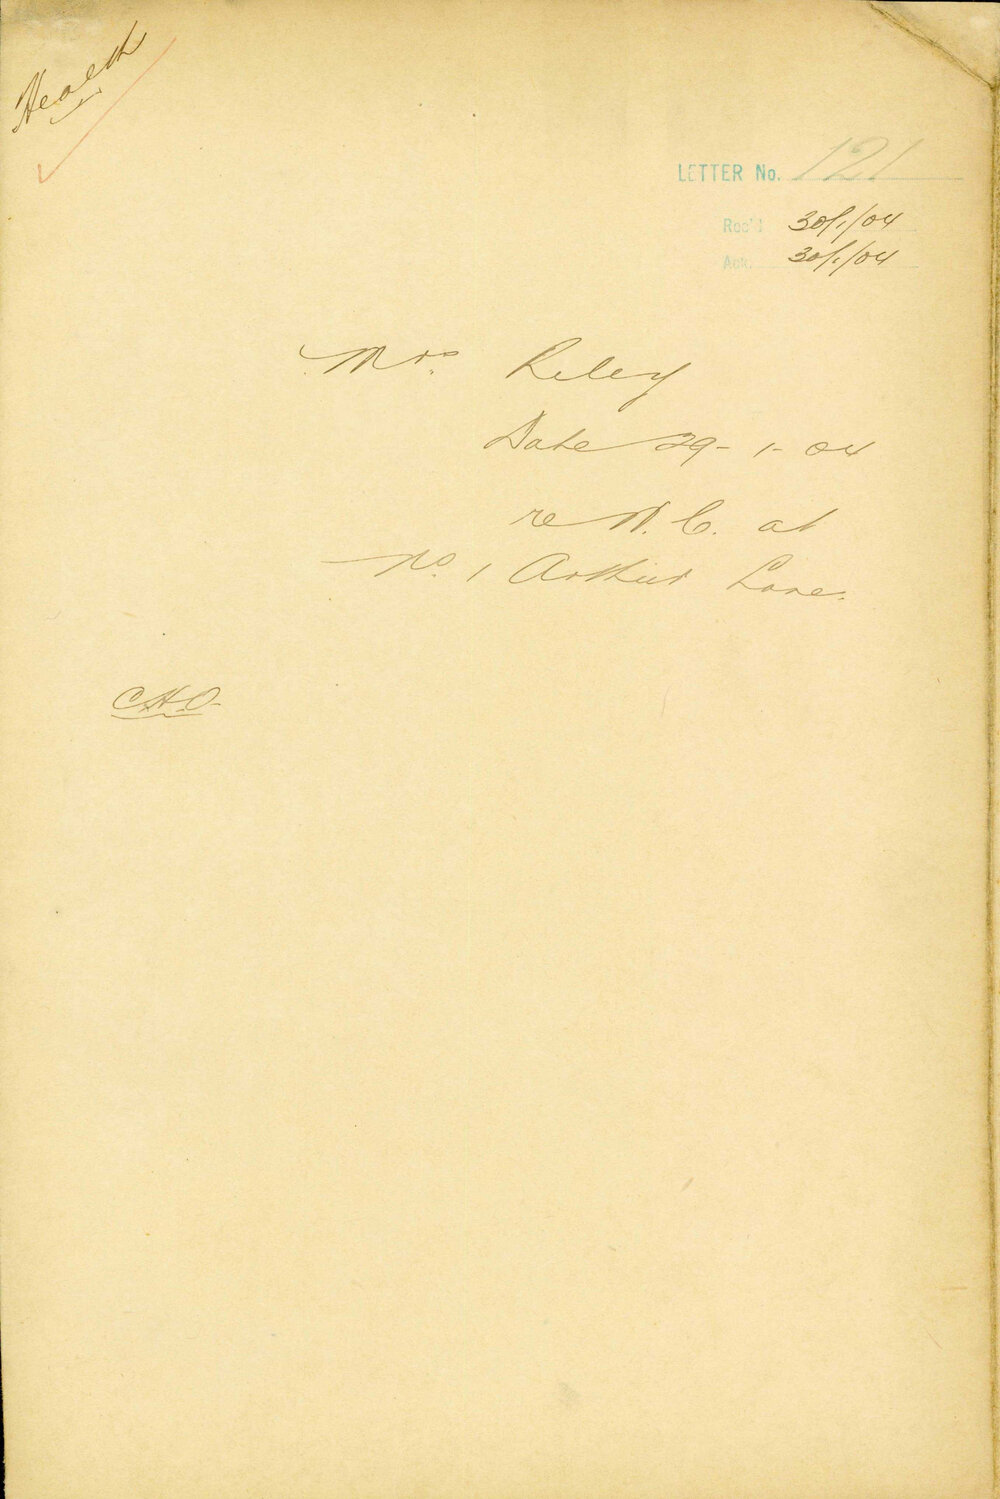 Health
LETTER No. 121
Rec'd 30/1/04
Ack. 30/1/04
Mrs. Riley
Date 29-1-04
re W.C. at
No. 1 Arthur Lane.
C.H.O.